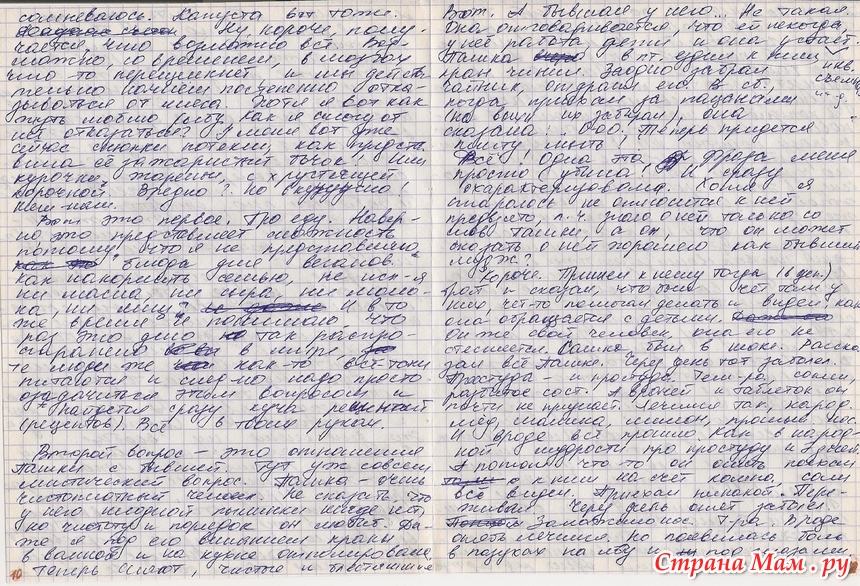 сомневаюсь. Капуста вот тоже.
Ну, короче, полу-
чается, что возможно всё. Воз-
можно, со временем, в мозгу
что-то перещёлкнет и мы действи-
тельно начнём постепенно отка-
зываться от мяса. Хотя я вот как
жуть люблю рыбу. Как я смогу от
неё отказаться? У меня вот уже
сейчас слюнки потекли, как предста-
вила её зажаристый бочок! Или
курочка, жареная, с хрустящей
корочкой. Вредно? Но вкууусно!
Ням-ням.
Вот это первое. Про еду. Навер-
но это представляет сложность
потому, что я не представляю,
блюда для веганов.
Как накормить семью, не исп-я
ни масла, ни сыра, ни моло-
ка, ни яиц И в то
же время я понимаю, что
раз это дело так распро-
странено в мире,
те люди же как-то всё-таки
питаются и надо просто
озадачиться этим вопросом и
найдется сразу куча решений
(рецептов). Всё в твоих руках.
Второй вопрос – это отношения
Пашки с бывшей. Тут уж совсем
мистический вопрос. Пашка – очень
чистоплотный человек. Не сказать, что
у него ни одной пылинки нигде нет,
но чистоту и порядок он любит. Да-
же я под его
в ванной и на кухне отполировала.
Теперь сияют, чистые и блестящие
10
Вот. А бывшая у него... Не такая.
Она отговаривается, что ей некогда,
у неё работа, дети и она устаёт.
Пашка в пт. ездил к ним
кран чинил. Заодно забрал
чайник, отдраил его. В сб.,
когда приехал за пацанами
(на вых их забирал), она
сказала: "Ооо! Теперь придется
плиту мыть!"
Всё! Одна эта фраза меня
просто убила! И сразу
охарактеризовала. Хотя я
стараюсь не относится к ней
предвзято, т.ч. знаю о ней только со
слов Пашки, а он, что он может
сказать о ней хорошего как бывший
муж?
Короче. Пришел к нему тогда (в ден.)
брат и сказал, что был чёт там у
них, чёт-то помогал делать и видел, как
она обращается с детьми.
Он же свой человек, она его не
стесняется. Сашка был в шоке. Расска-
зал всё Пашке. Через день тот заболел.
Простуда – и простуда. Темп-ра, сопли,
разбитое сост. А врачей и таблеток он
почти не признает. Лечился так, народ.
мёд, малина, лимон, промывал нос.
И вроде всё прошло. Как в народ-
ной мудрости про простуду и 7 дней.
А потом что-то он опять поехал
к ним на счёт крана, сам
всё видел. Приехал никакой. Пере-
живал. Через день опять заболел.
Заложило нос. Т-ра. Вроде
опять лечился. Но появилась боль
в пазухах на лбу и под глазами.
Страна Мам.ру